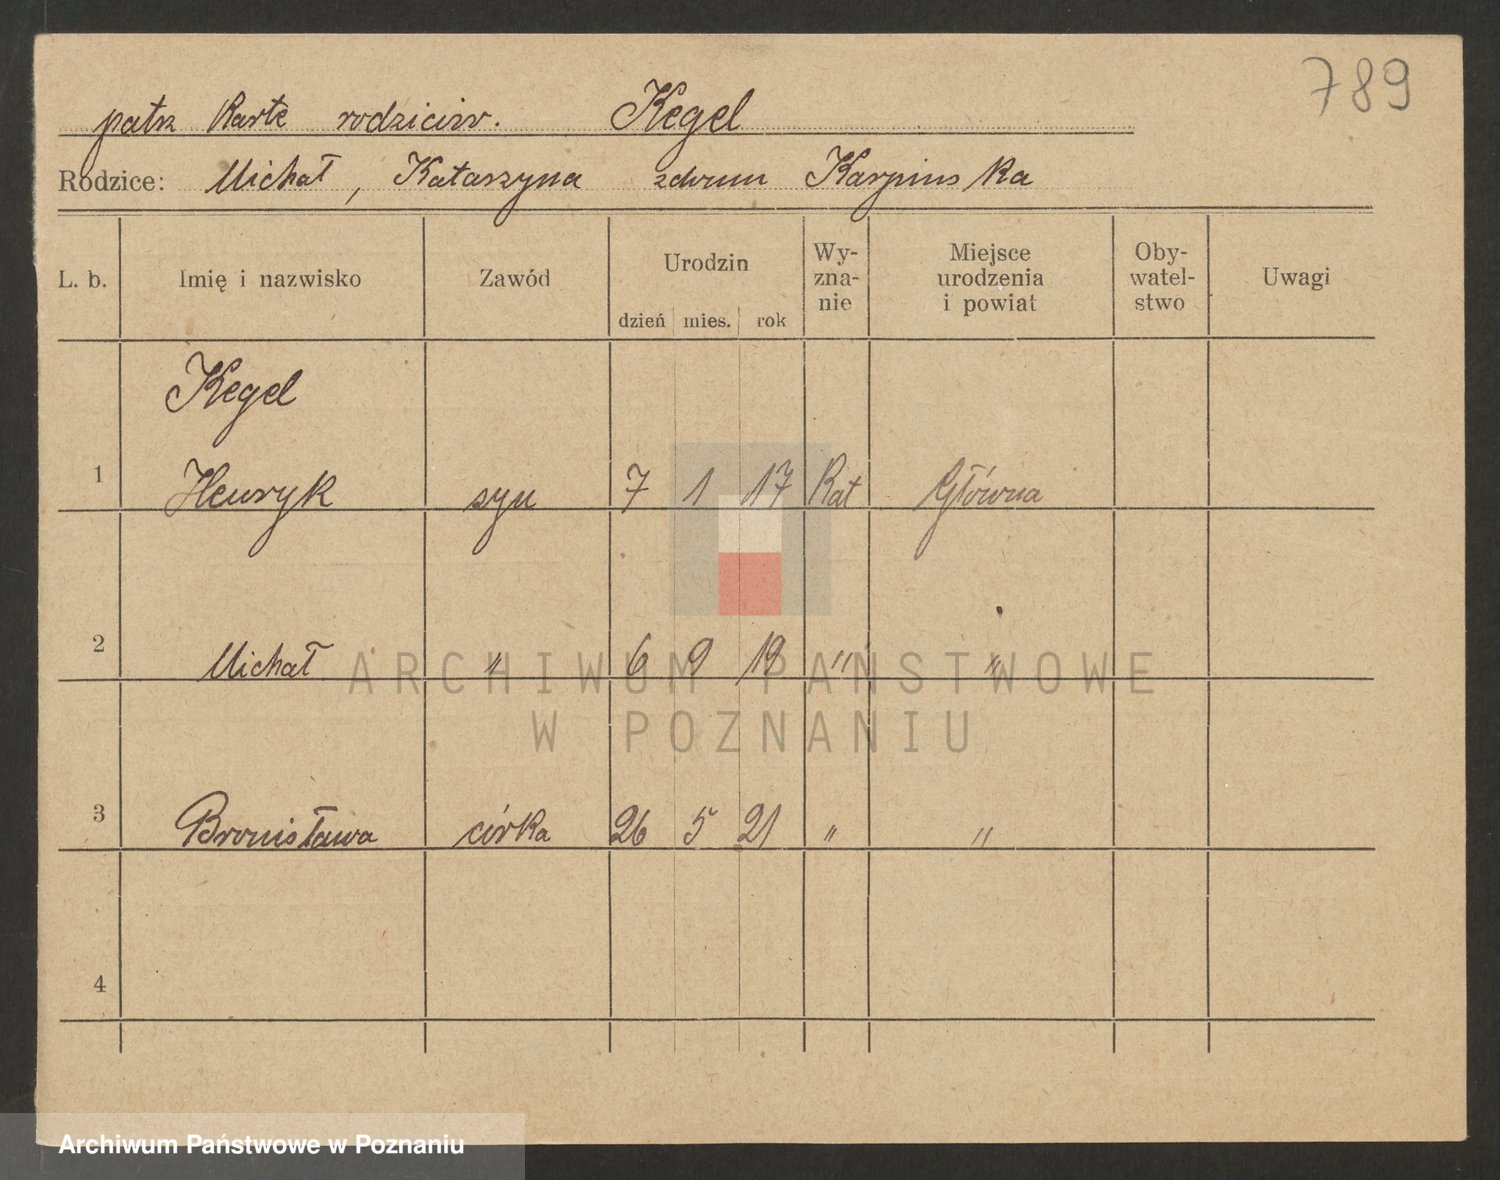 789
patrz Kartę rodziców. Kegel
Rodzice: Michał, Katarzyna zdomu Karpinska
L. b. Imię i nazwisko Zawód Urodzin dzień mies. rok Wy-zna-nie Miejsce urodzenia i powiat Oby-watel-stwo Uwagi
Kegel
1 Henryk syn 7 1 17 Kat Główna
2 Michał " 6 9 19 " "
3 Bronisława córka 26 5 21 " "
4
ARCHIWUM PAŃSTWOWE
W POZNANIU
Archiwum Państwowe w Poznaniu